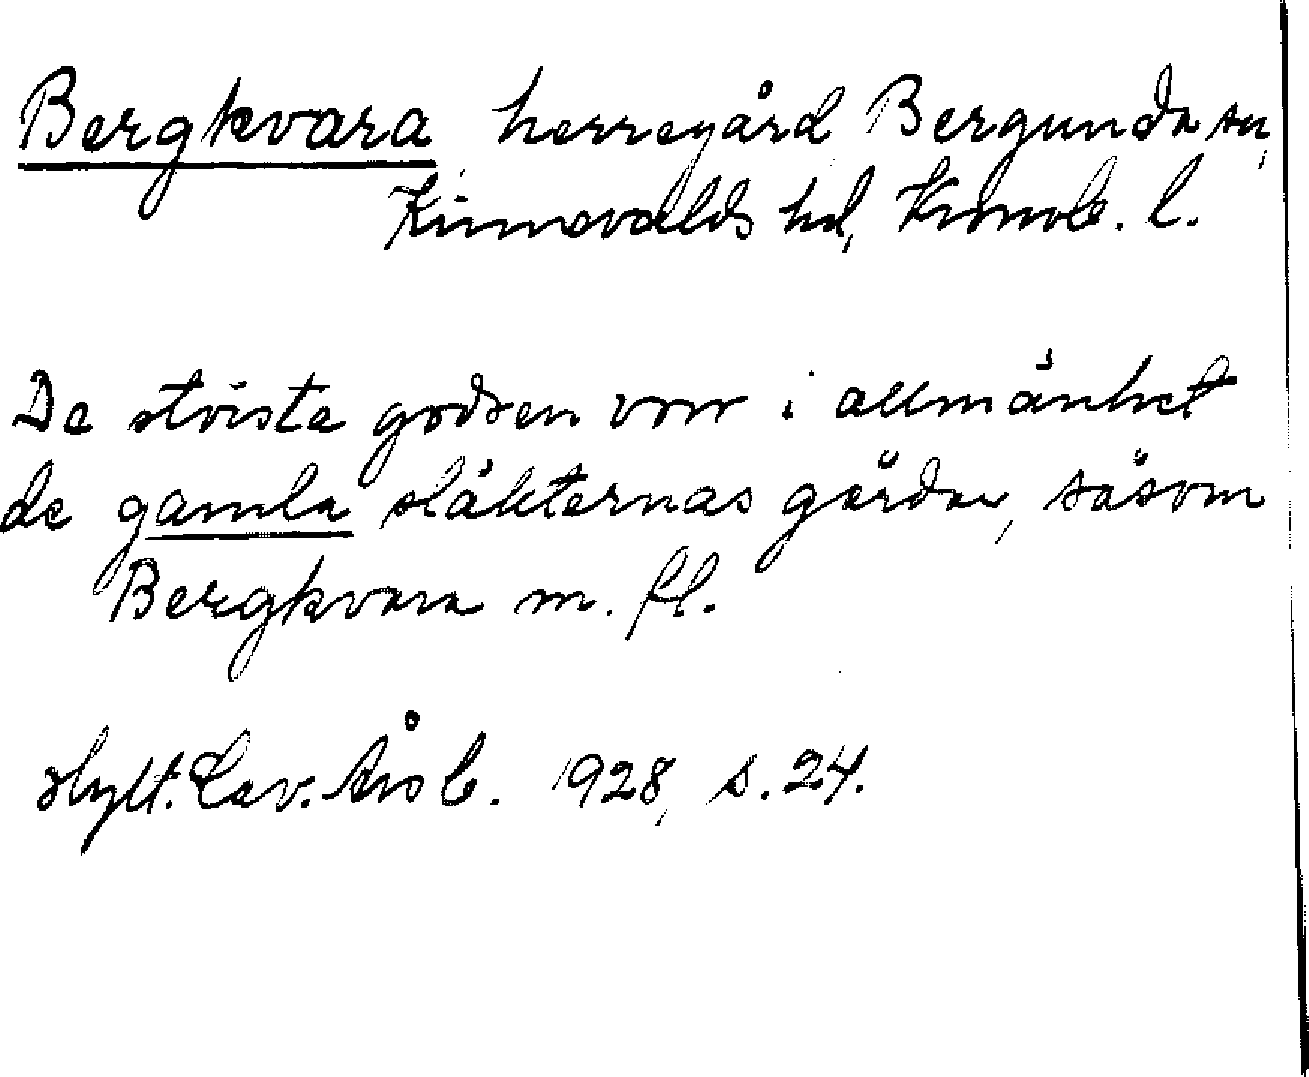 Bergkvara, herregård Bergunda sn,
Kinnevalds hd, Kronob. l.
De största godsen voro i allmänhet
de gamla släkternas gårdar, såsom
Bergkvara m. fl.
Hylt. Cav. Årsb. 1928, s. 24.